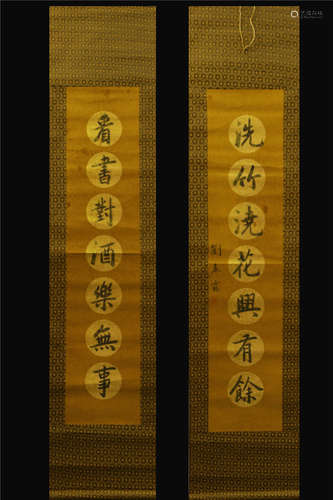 洗竹澆花興有餘
看書對酒樂無事